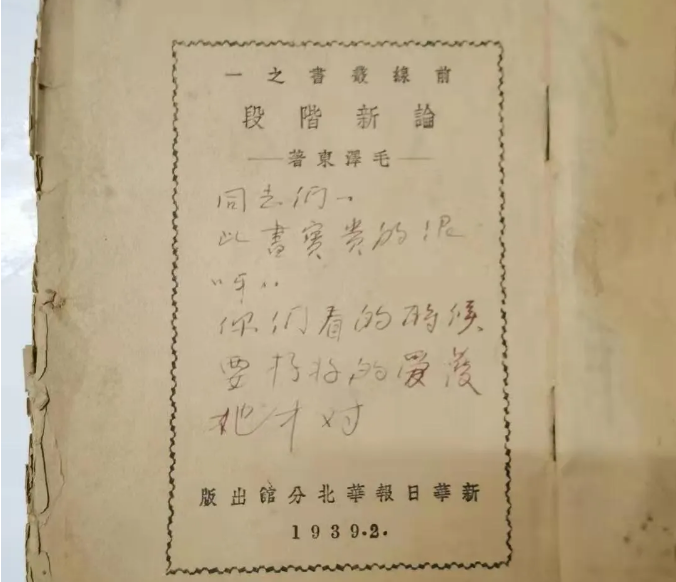 前線叢書之一
論新階段
——毛澤東著——
同志们、
此書寶貴的很
呀
你们看的時候
要好好的愛護
他才对
新華日報華北分館出版
1939.2.